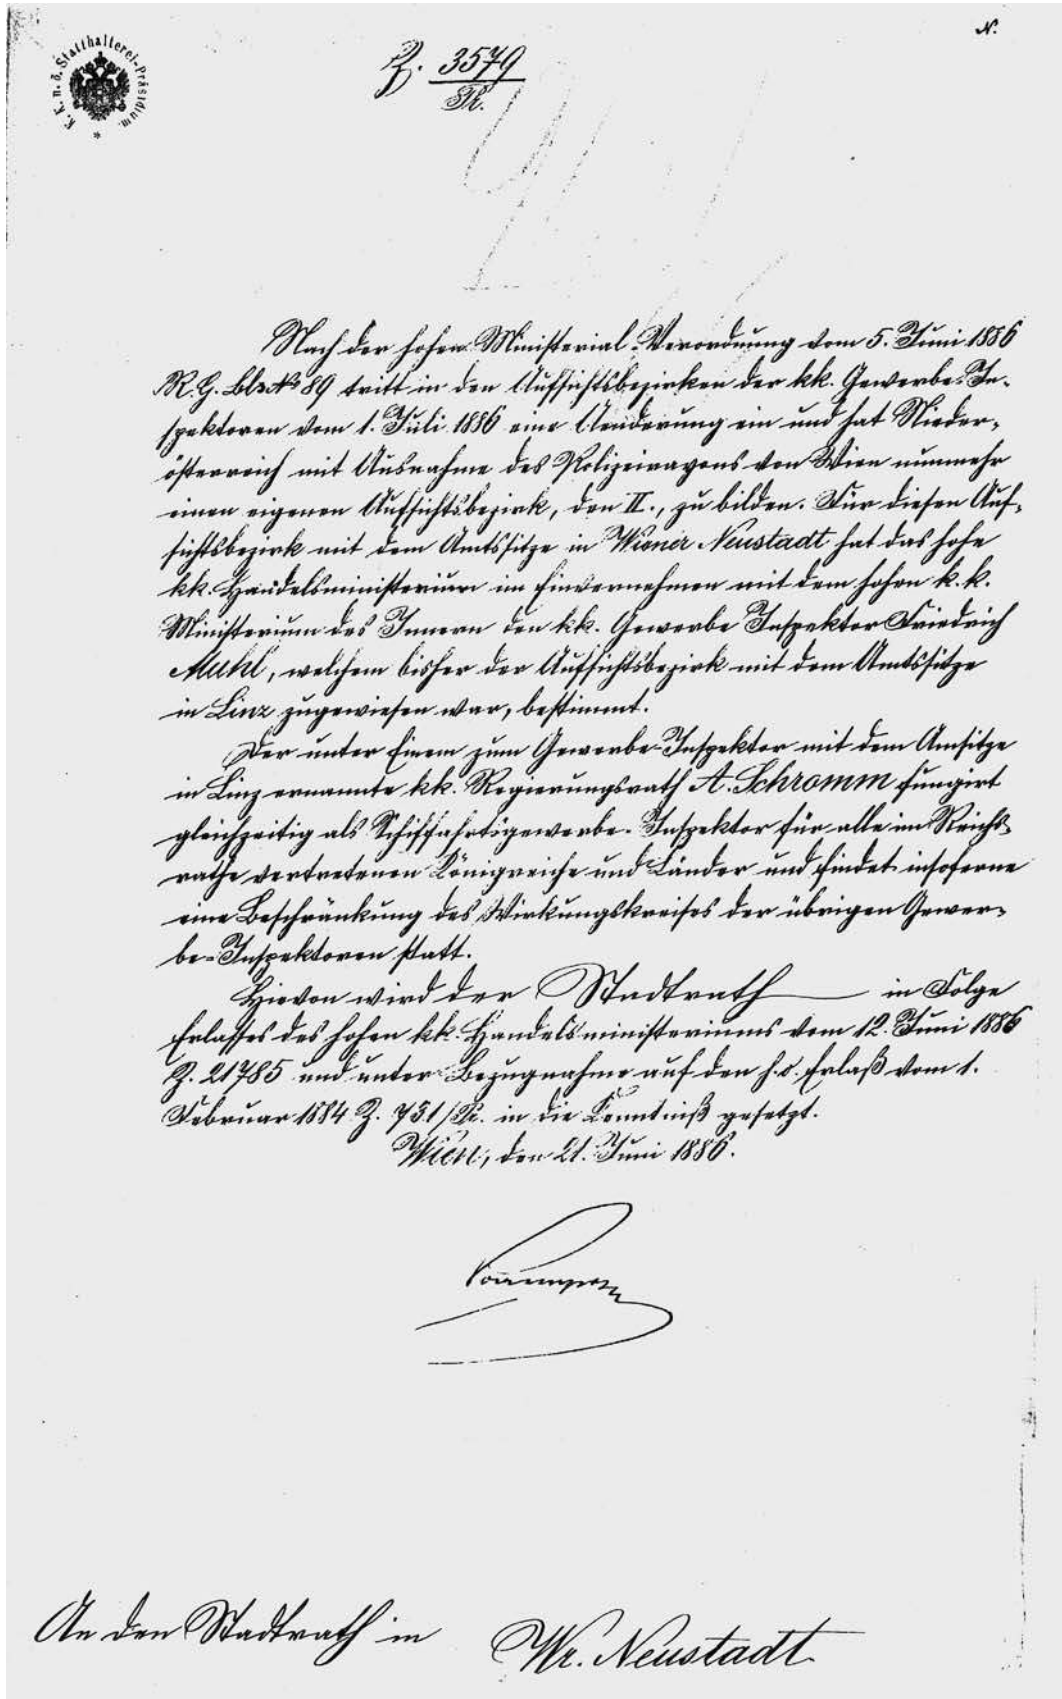 N.
K. K. n. ö. Statthalterei-Präsidium.
Z. 3579
Pr.
Nach der hohen Ministerial-Verordnung vom 5. Juni 1886
R. G. Bl. No 89 tritt in den Aufsichtsbezirken der kk. Gewerbe-In-
spektoren vom 1. Juli 1886 eine Aenderung ein und hat Nieder-
österreich mit Ausnahme des Polizeirayons von Wien nunmehr
einen eigenen Aufsichtsbezirk, den II., zu bilden. Für diesen Auf-
sichtsbezirk mit dem Amtssitze in Wiener Neustadt hat das hohe
kk. Handelsministerium im Einvernehmen mit dem hohen k. k.
Ministerium des Innern den kk. Gewerbe Inspektor Friedrich
Muhl, welchem bisher der Aufsichtsbezirk mit dem Amtssitze
in Linz zugewiesen war, bestimmt.
Der unter Einem zum Gewerbe-Inspektor mit dem Amsitze
in Linz ernannte kk. Regierungsrath A. Schromm fungirt
gleichzeitig als Schiffahrtsgewerbe-Inspektor für alle im Reichs-
rathe vertretenen Königreiche und Länder und findet insoferne
eine Beschränkung des Wirkungskreises der übrigen Gewer-
be-Inspektoren statt.
Hievon wird der Stadtrath in Folge
Erlasses des hohen kk. Handelsministeriums vom 12. Juni 1886
Z. 21785 und unter Bezugnahme auf den h. o. Erlaß vom 1.
Februar 1884 Z. 751/Pr. in die Kenntniß gesetzt.
Wien, den 21. Juni 1886.
An den Stadtrath in Wr. Neustadt